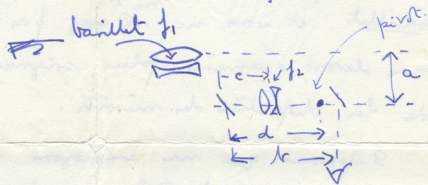 barillet f1
pivot.
c
f2
a
d
b